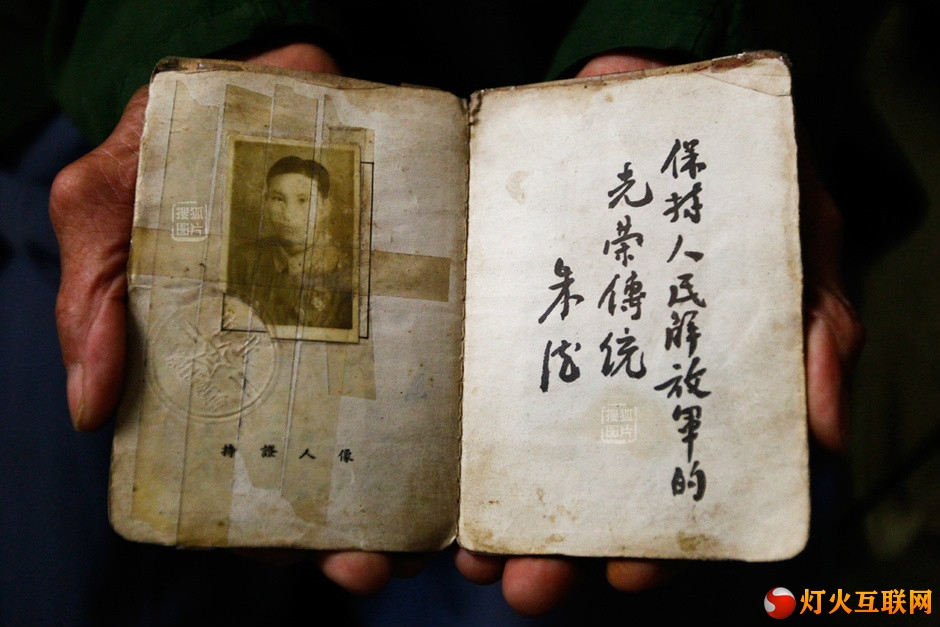 持證人像
保持人民解放軍的
光荣傳統
朱德
搜狐
图片
搜狐
图片
灯火互联网